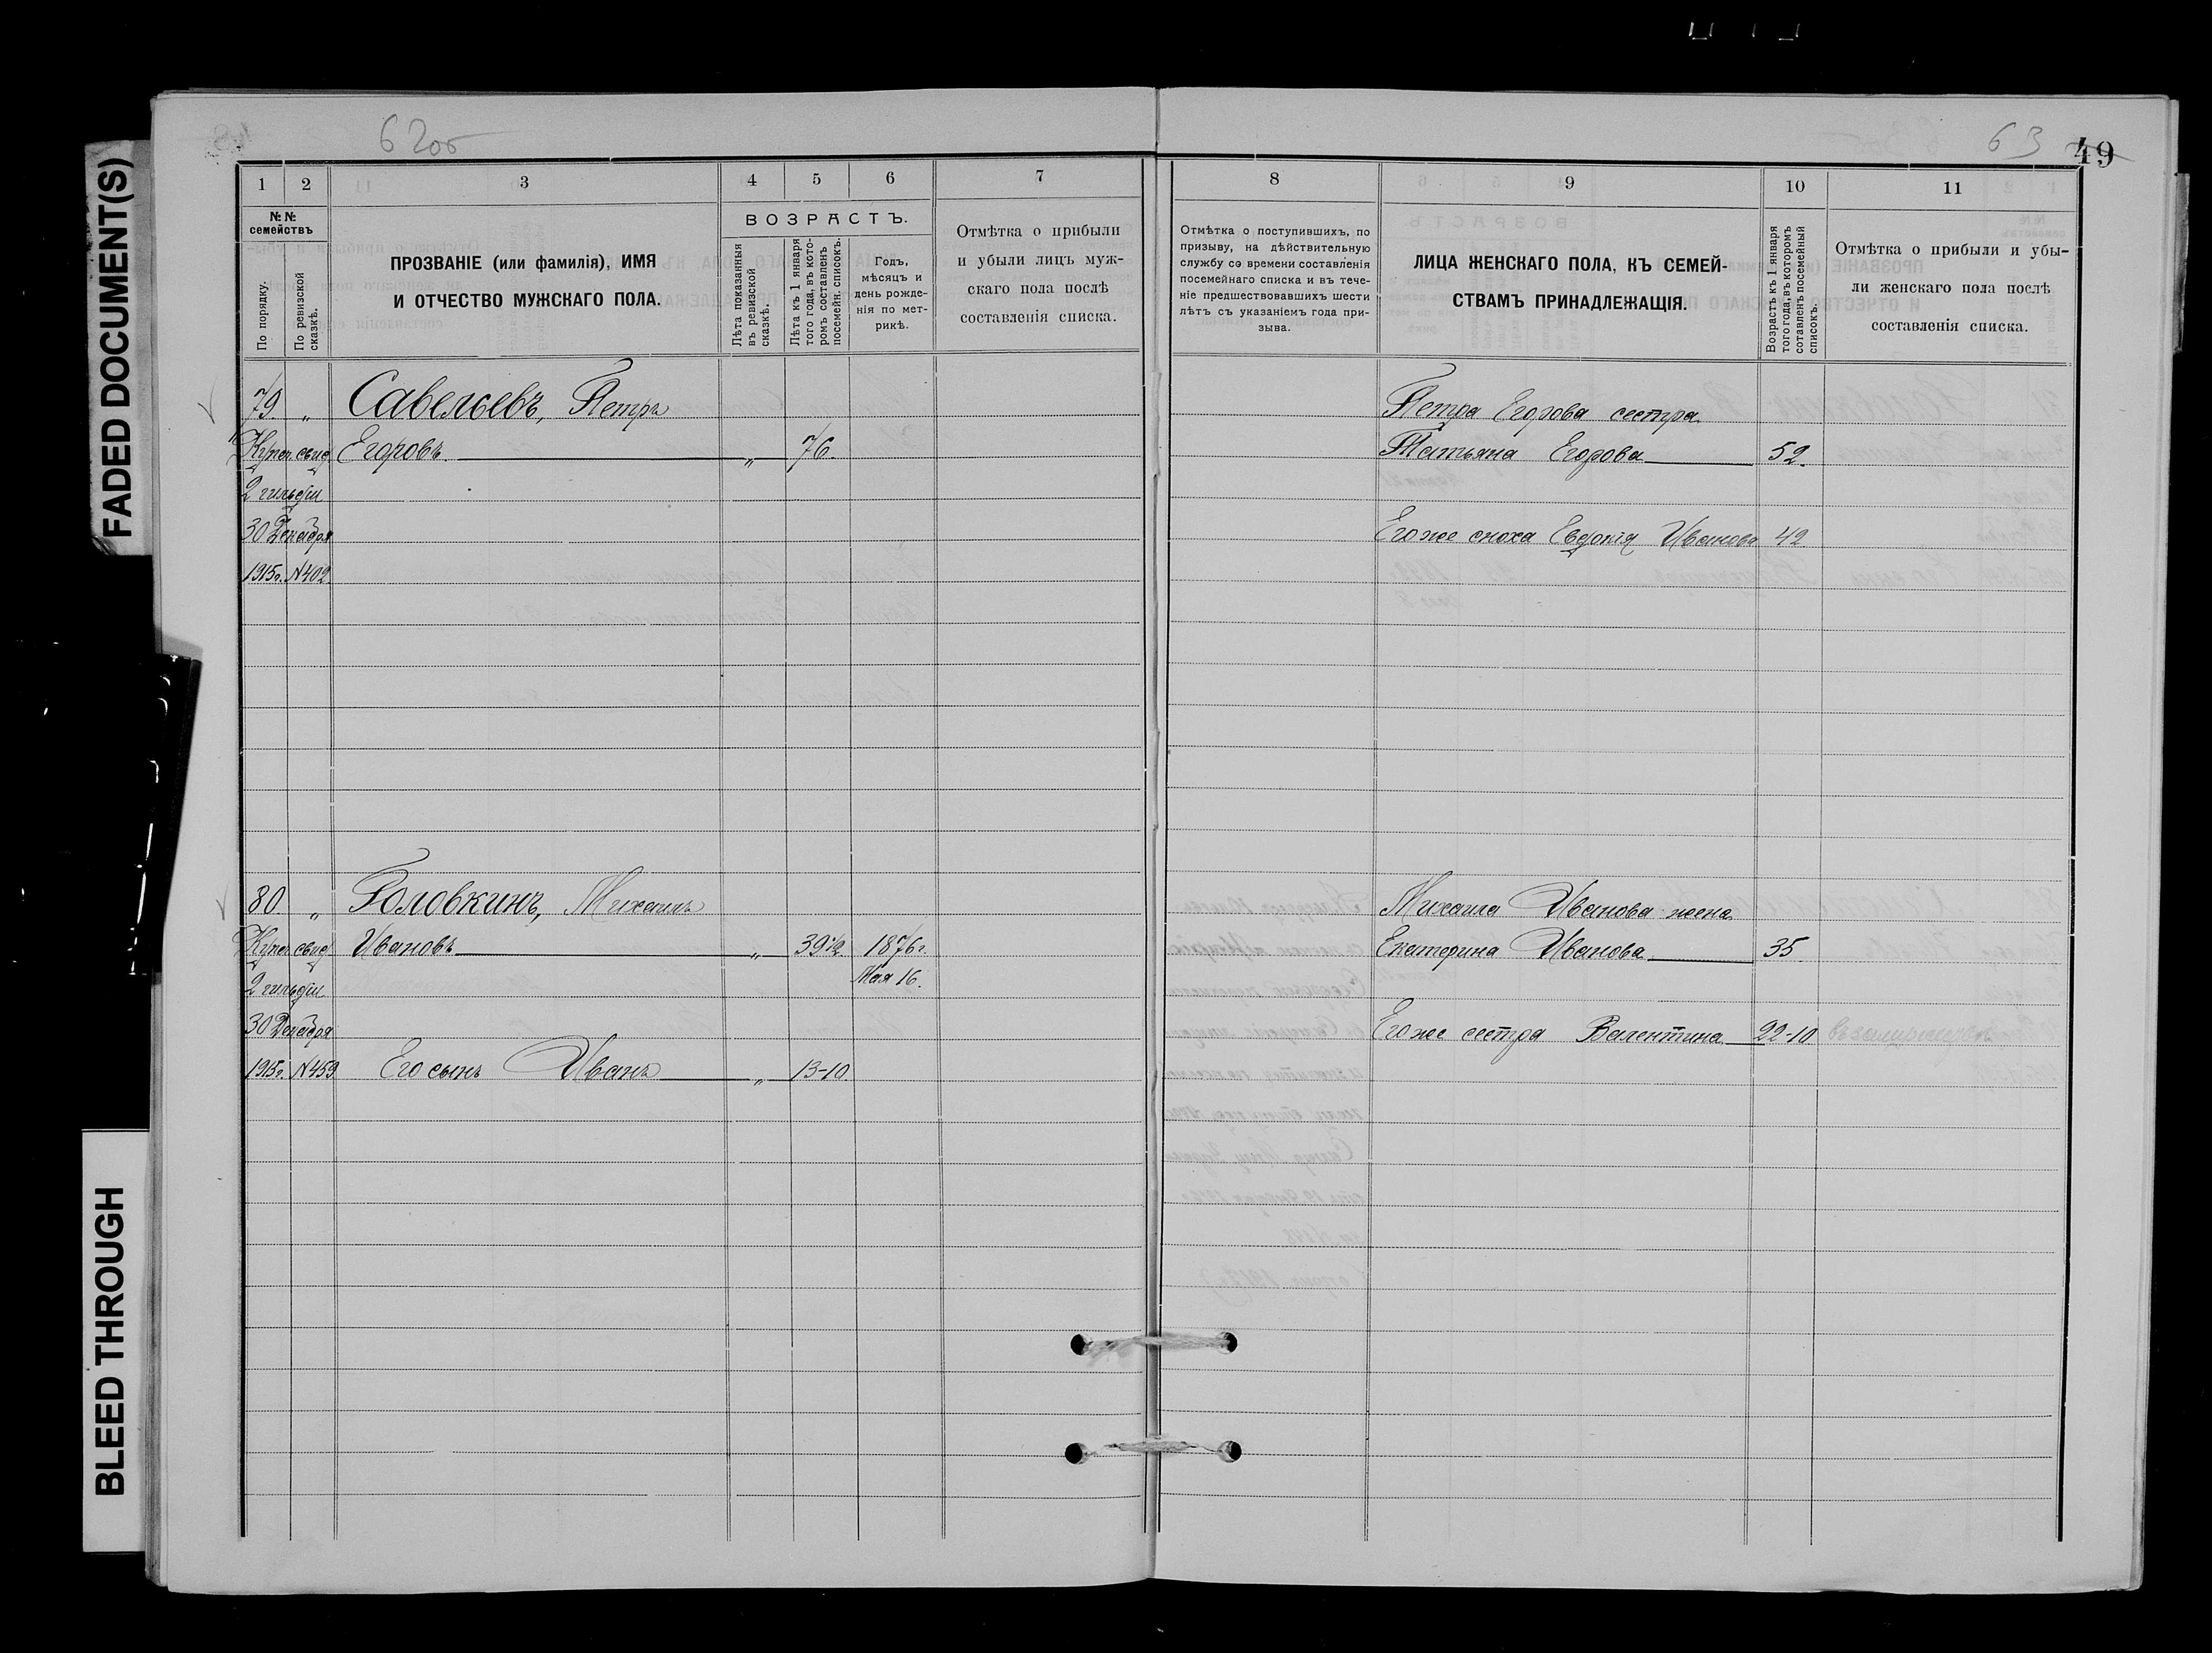 FADED DOCUMENT(S)
BLEED THROUGH
62об
63 49
1 2 3 4 5 6 7
№№ семействъ
По порядку.
По ревизской сказкѣ.
ПРОЗВАНІЕ (или фамилія), ИМЯ
И ОТЧЕСТВО МУЖСКАГО ПОЛА.
ВОЗРАСТЪ.
Лѣта показанныя въ ревизской сказкѣ.
Лѣта къ 1 января того года, въ кото-ромъ составленъ посемейн. списокъ.
Годъ,
мѣсяцъ и
день рожде-
нія по мет-
рикѣ.
Отмѣтка о прибыли
и убыли лицъ муж-
скаго пола послѣ
составленія списка.
79 „ Савельевъ, Петръ
Купеч. свид. Егоровъ „ 76.
2 гильдіи
30 Декабря
1915г. №402
80. „ Головкинъ, Михаилъ
Купеч. свид. Ивановъ „ 39½ 1876г.
2 гильдіи Мая 16.
30 Декабря
1915г. №459 Его сынъ Иванъ „ 13-10.
8 9 10 11
Отмѣтка о поступившихъ, по
призыву, на дѣйствительную
службу со времени составленія
посемейнаго списка и въ тече-
ніе предшествовавшихъ шести
лѣтъ съ указаніемъ года при-
зыва.
ЛИЦА ЖЕНСКАГО ПОЛА, КЪ СЕМЕЙ-
СТВАМЪ ПРИНАДЛЕЖАЩІЯ.
Возрастъ къ 1 января
того года, въ которомъ
сотавленъ посемейный
списокъ.
Отмѣтка о прибыли и убы-
ли женскаго пола послѣ
составленія списка.
Петра Егорова сестра
Татьяна Егорова 52.
Его же сноха Евдокія Иванова 42
Михаила Иванова жена
Екатерина Иванова 35.
Его же сестра Валентина 22-10